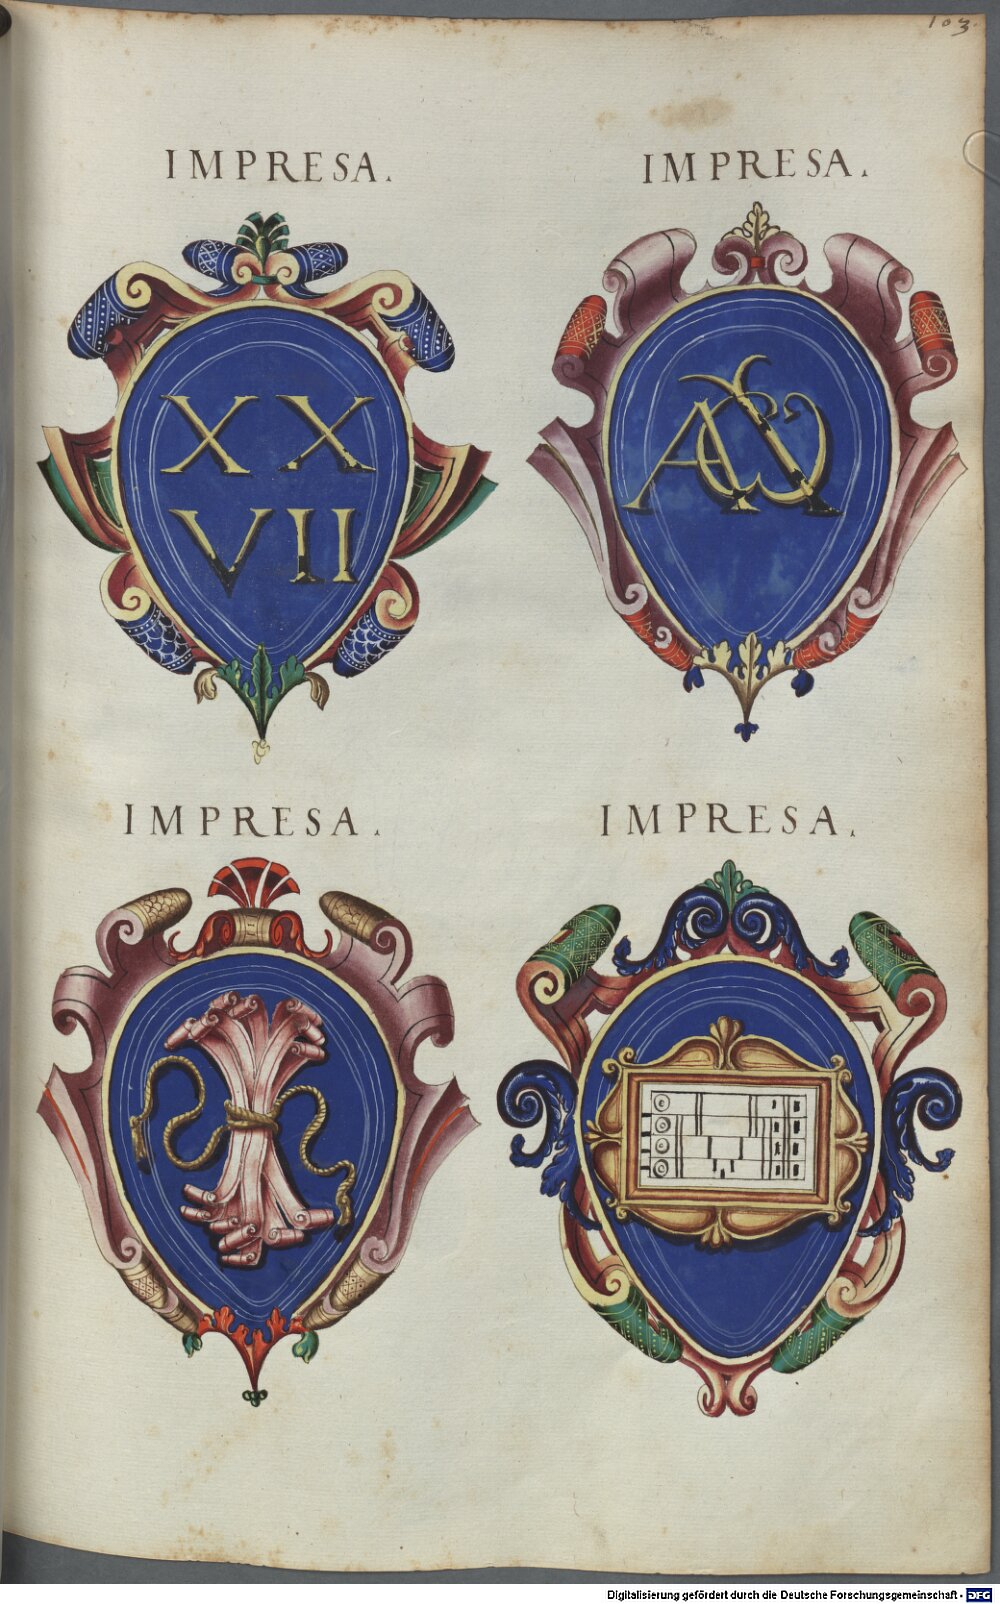 103.
IMPRESA.
IMPRESA.
XX
VII
IMPRESA.
IMPRESA.
Digitalisierung gefördert durch die Deutsche Forschungsgemeinschaft - DFG